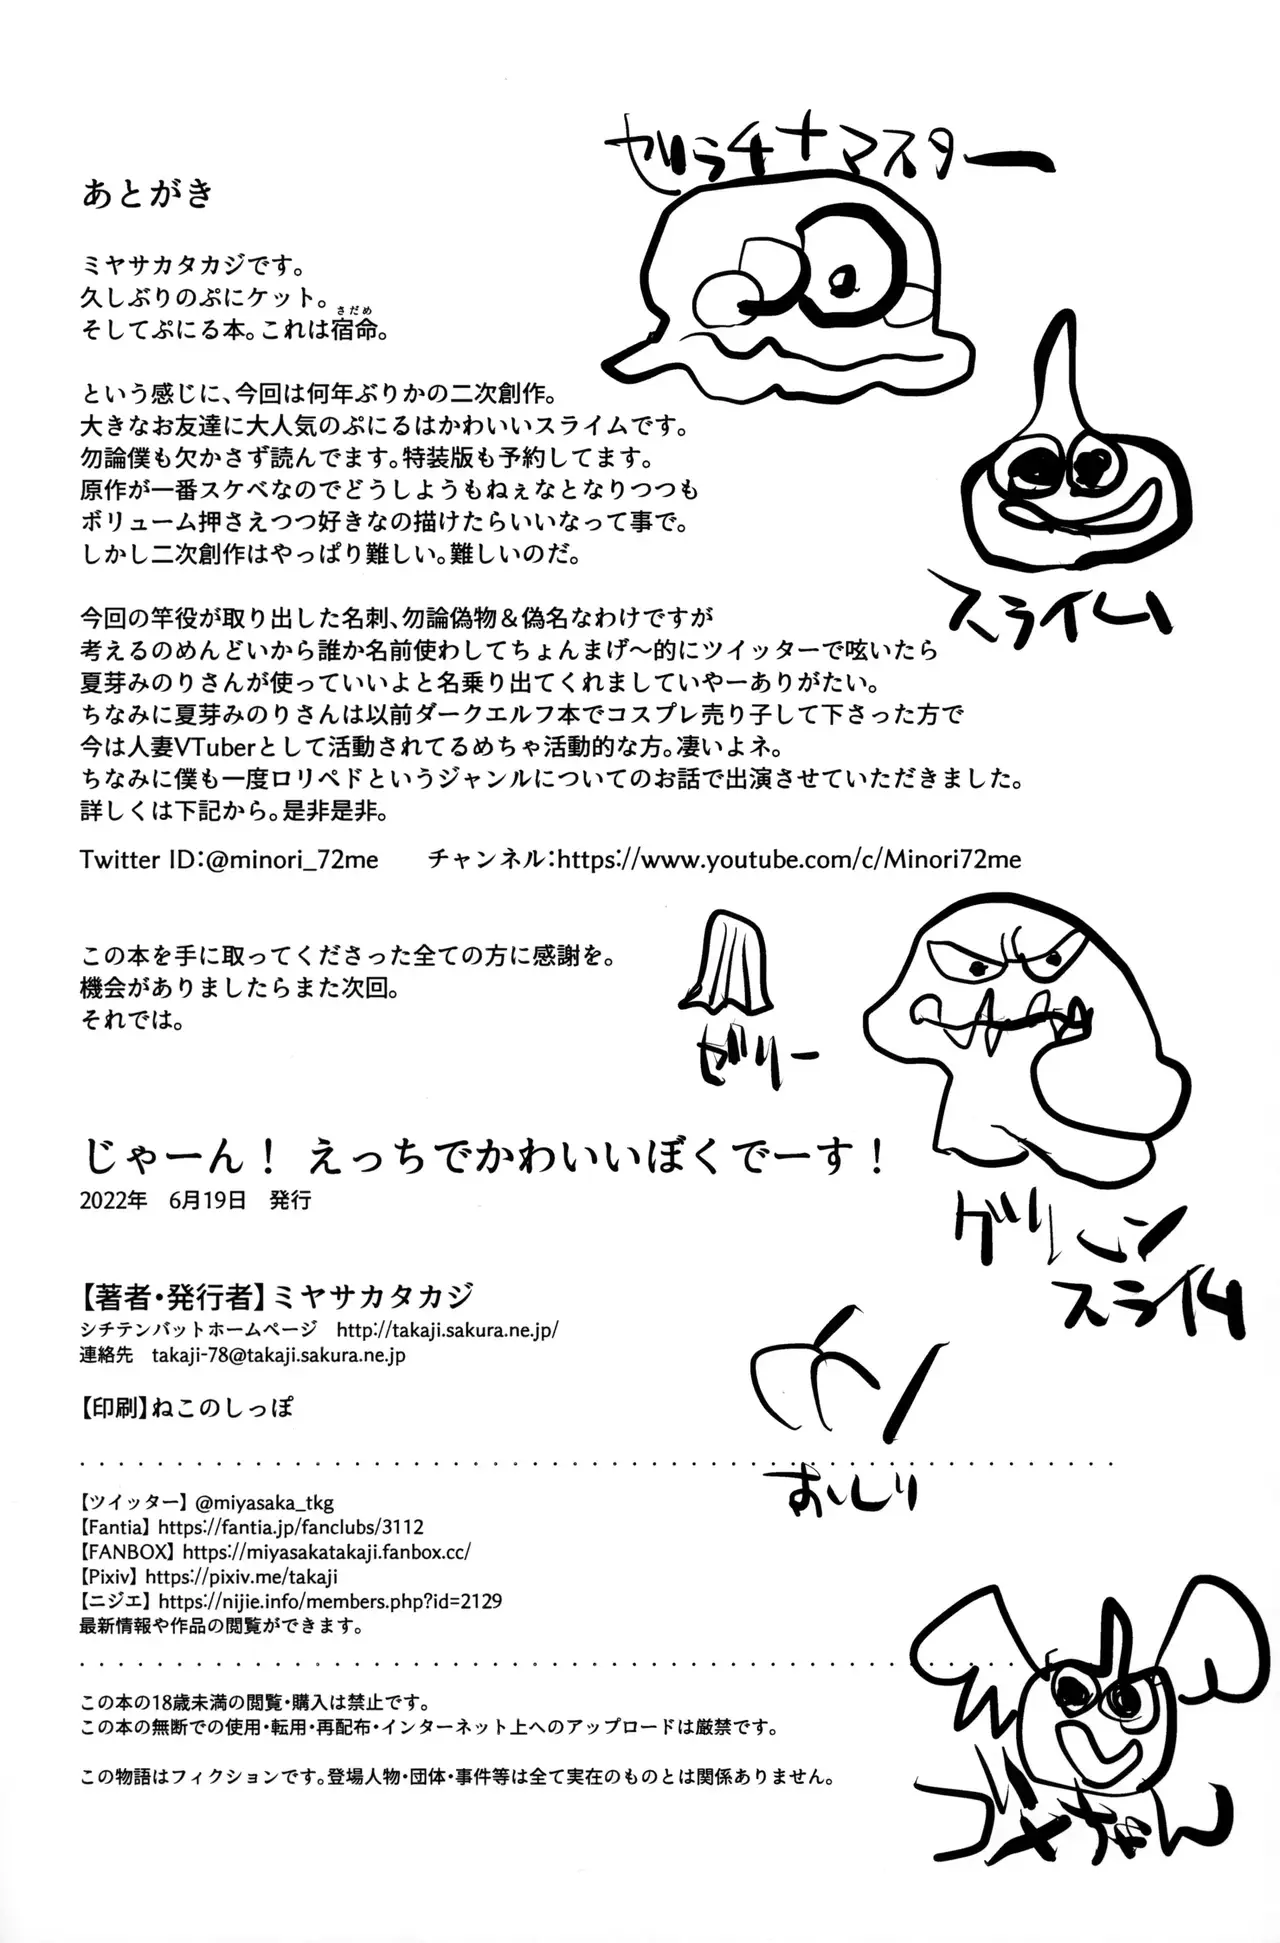 ゼラチナマスター
あとがき
ミヤサカタカジです。
久しぶりのぷにケット。
さだめ
そしてぷにる本。これは宿命。
スライム
という感じに、今回は何年ぶりかの二次創作。
大きなお友達に大人気のぷにるはかわいいスライムです。
勿論僕も欠かさず読んでます。特装版も予約してます。
原作が一番スケベなのでどうしようもねぇなとなりつつも
ボリューム押さえつつ好きなの描けたらいいなって事で。
しかし二次創作はやっぱり難しい。難しいのだ。
今回の竿役が取り出した名刺、勿論偽物＆偽名なわけですが
考えるのめんどいから誰か名前使わしてちょんまげ〜的にツイッターで呟いたら
夏芽みのりさんが使っていいよと名乗り出てくれましていやーありがたい。
ちなみに夏芽みのりさんは以前ダークエルフ本でコスプレ売り子して下さった方で
今は人妻VTuberとして活動されてるめちゃ活動的な方。凄いよネ。
ちなみに僕も一度ロリペドというジャンルについてのお話で出演させていただきました。
詳しくは下記から。是非是非。
Twitter ID：@minori_72me　チャンネル：https://www.youtube.com/c/Minori72me
この本を手に取ってくださった全ての方に感謝を。
機会がありましたらまた次回。
それでは。
ゼリー
グリーン
スライム
じゃーん！ えっちでかわいいぼくでーす！
2022年　6月19日　発行
【著者・発行者】ミヤサカタカジ
シチテンバットホームページ　http://takaji.sakura.ne.jp/
連絡先　takaji-78@takaji.sakura.ne.jp
【印刷】ねこのしっぽ
おしり
【ツイッター】@miyasaka_tkg
【Fantia】https://fantia.jp/fanclubs/3112
【FANBOX】https://miyasakatakaji.fanbox.cc/
【Pixiv】https://pixiv.me/takaji
【ニジエ】https://nijie.info/members.php?id=2129
最新情報や作品の閲覧ができます。
この本の18歳未満の閲覧・購入は禁止です。
この本の無断での使用・転用・再配布・インターネット上へのアップロードは厳禁です。
この物語はフィクションです。登場人物・団体・事件等は全て実在のものとは関係ありません。
ゴメちゃん